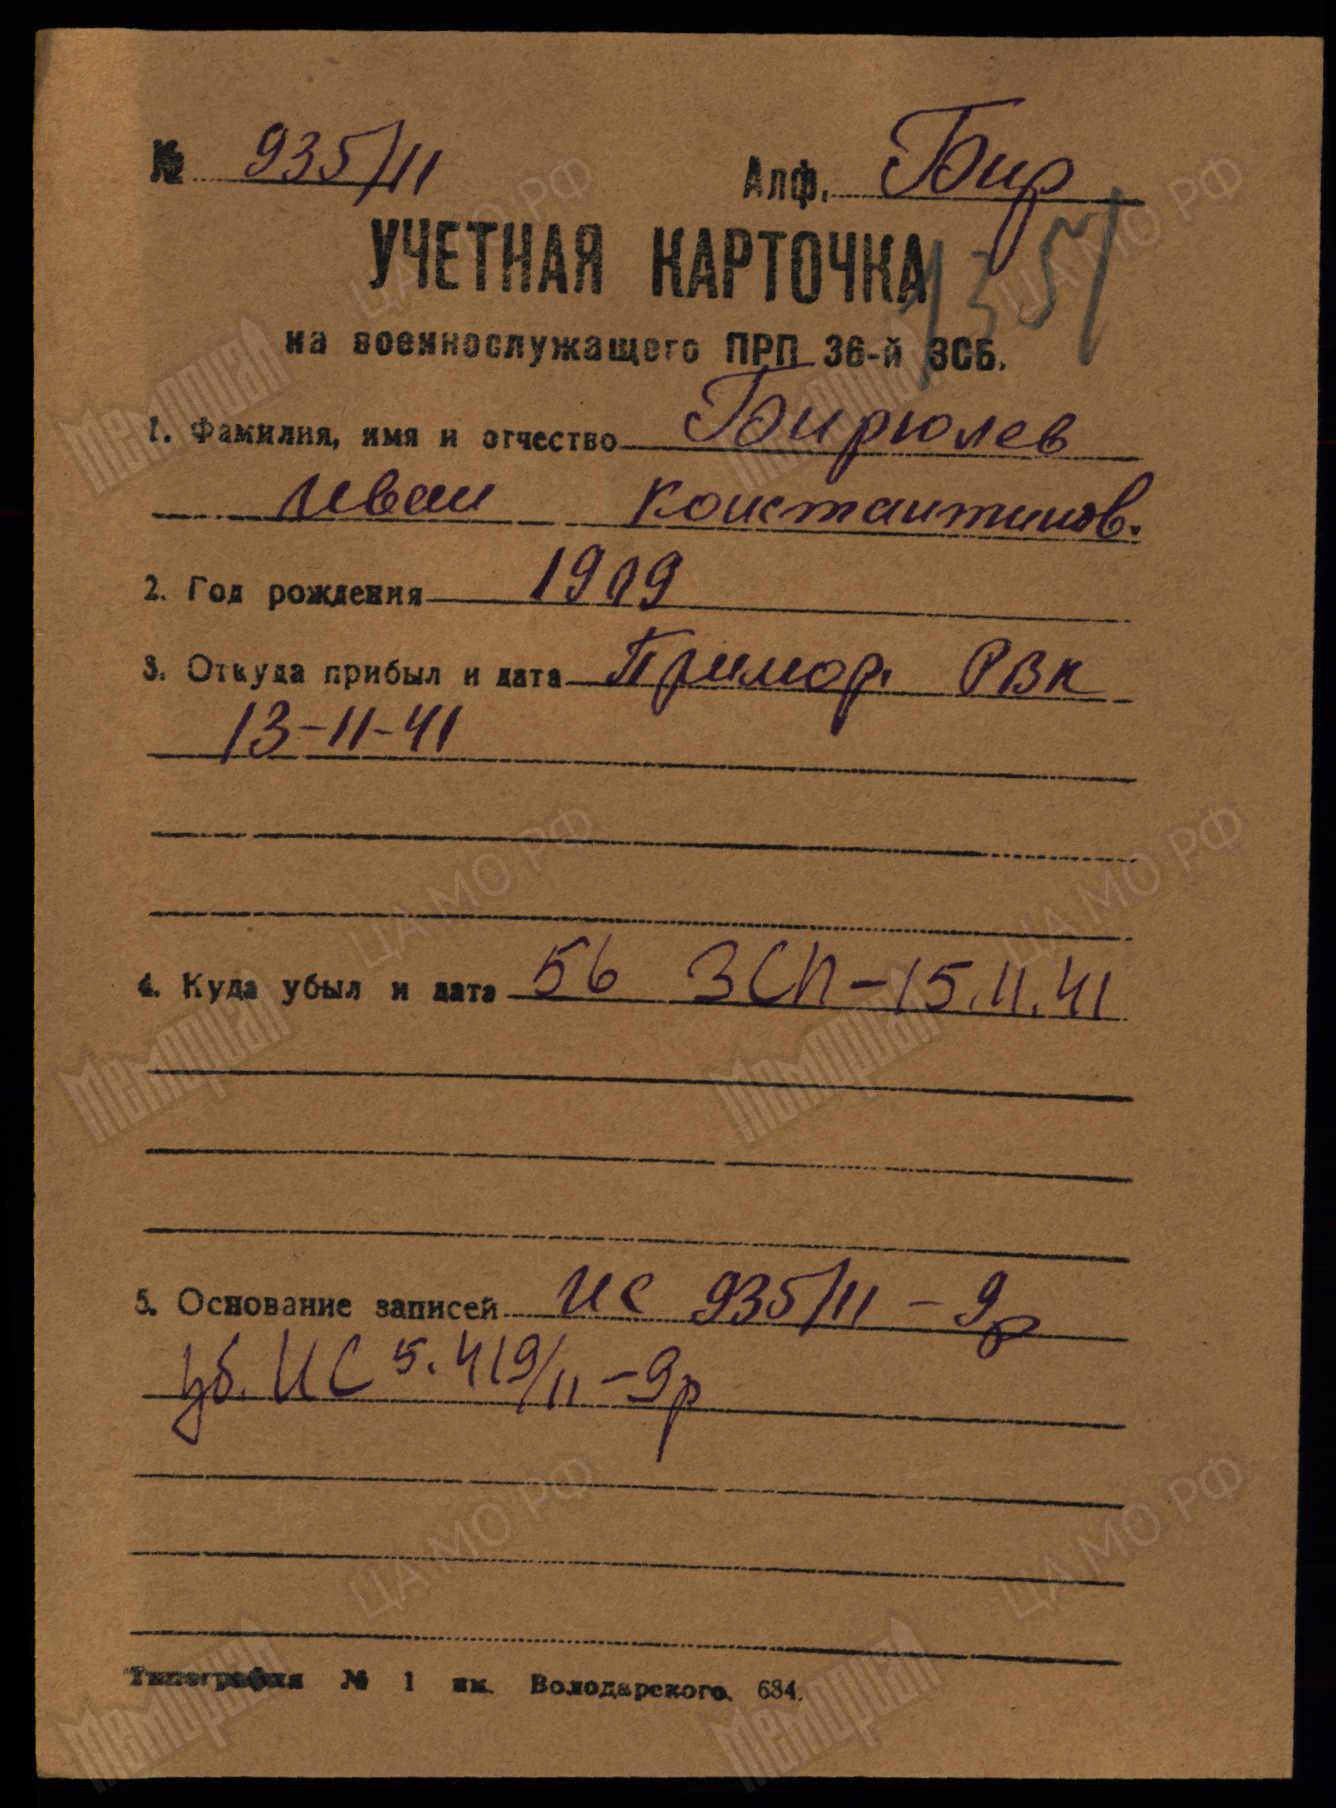 № 935/11 Алф. Бир
1351
УЧЕТНАЯ КАРТОЧКА
на военнослужащего ПРП 36-й ЗСБ.
1. Фамилия, имя и отчество Бирюлев
Иван Константинов.
2. Год рождения 1909
3. Откуда прибыл и дата Примор. РВК
13-11-41
4. Куда убыл и дата 56 ЗСП-15.11.41
5. Основание записей ИС 935/11 - 9р
Уб. ИС 5.419/11-9р
Типография № 1 им. Володарского. 684.
Мемориал
ЦА МО РФ